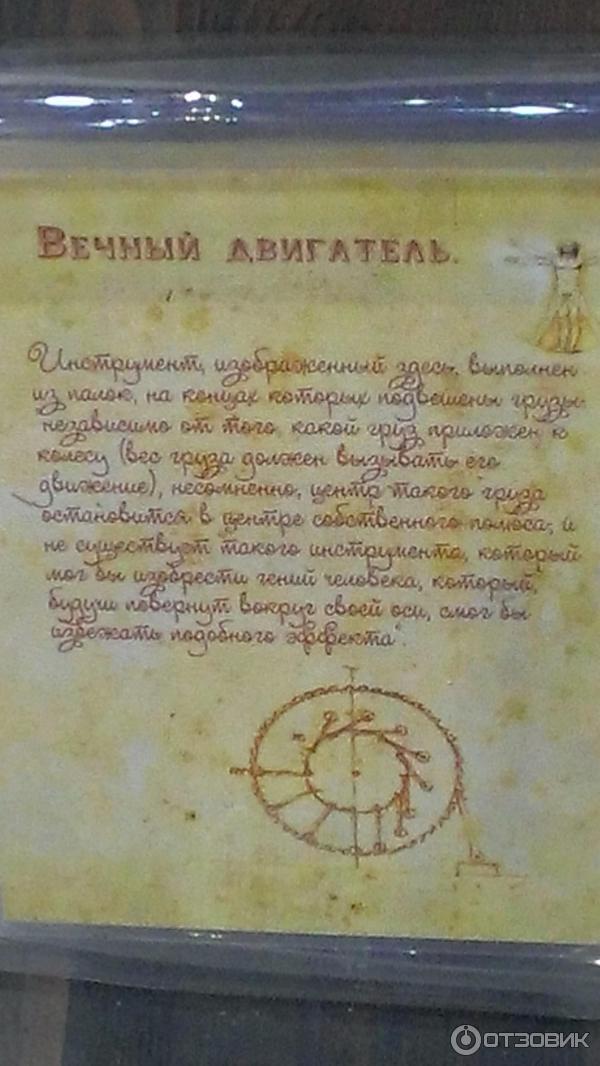 Вечный двигатель.
Инструмент, изображенный здесь, выполнен
из палок, на концах которых подвешены грузы:
"независимо от того, какой груз приложен к
колесу (вес груза должен вызывать его
движение), несомненно, центр такого груза
остановится в центре собственного полюса; и
не существует такого инструмента, который
мог бы изобрести гений человека, который,
будучи повернут вокруг своей оси, смог бы
избежать подобного эффекта".
ОТЗОВИК